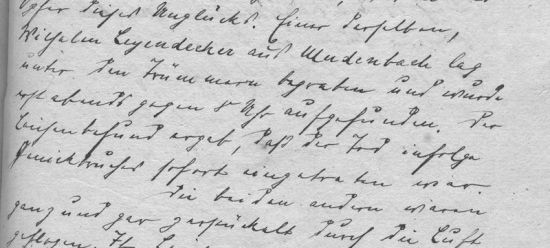 Opfer dieses Unglücks. Einer derselben,
Wilhelm Leyendecker aus Mudenbach lag
unter den Trümmern begraben und wurde
erst abends gegen 8 Uhr aufgefunden. Der
Leichenbefund ergab, daß der Tod infolge
Genickbruches sofort eingetreten war.
Die beiden andern waren
ganz und gar zerstückelt durch die Luft
geflogen.